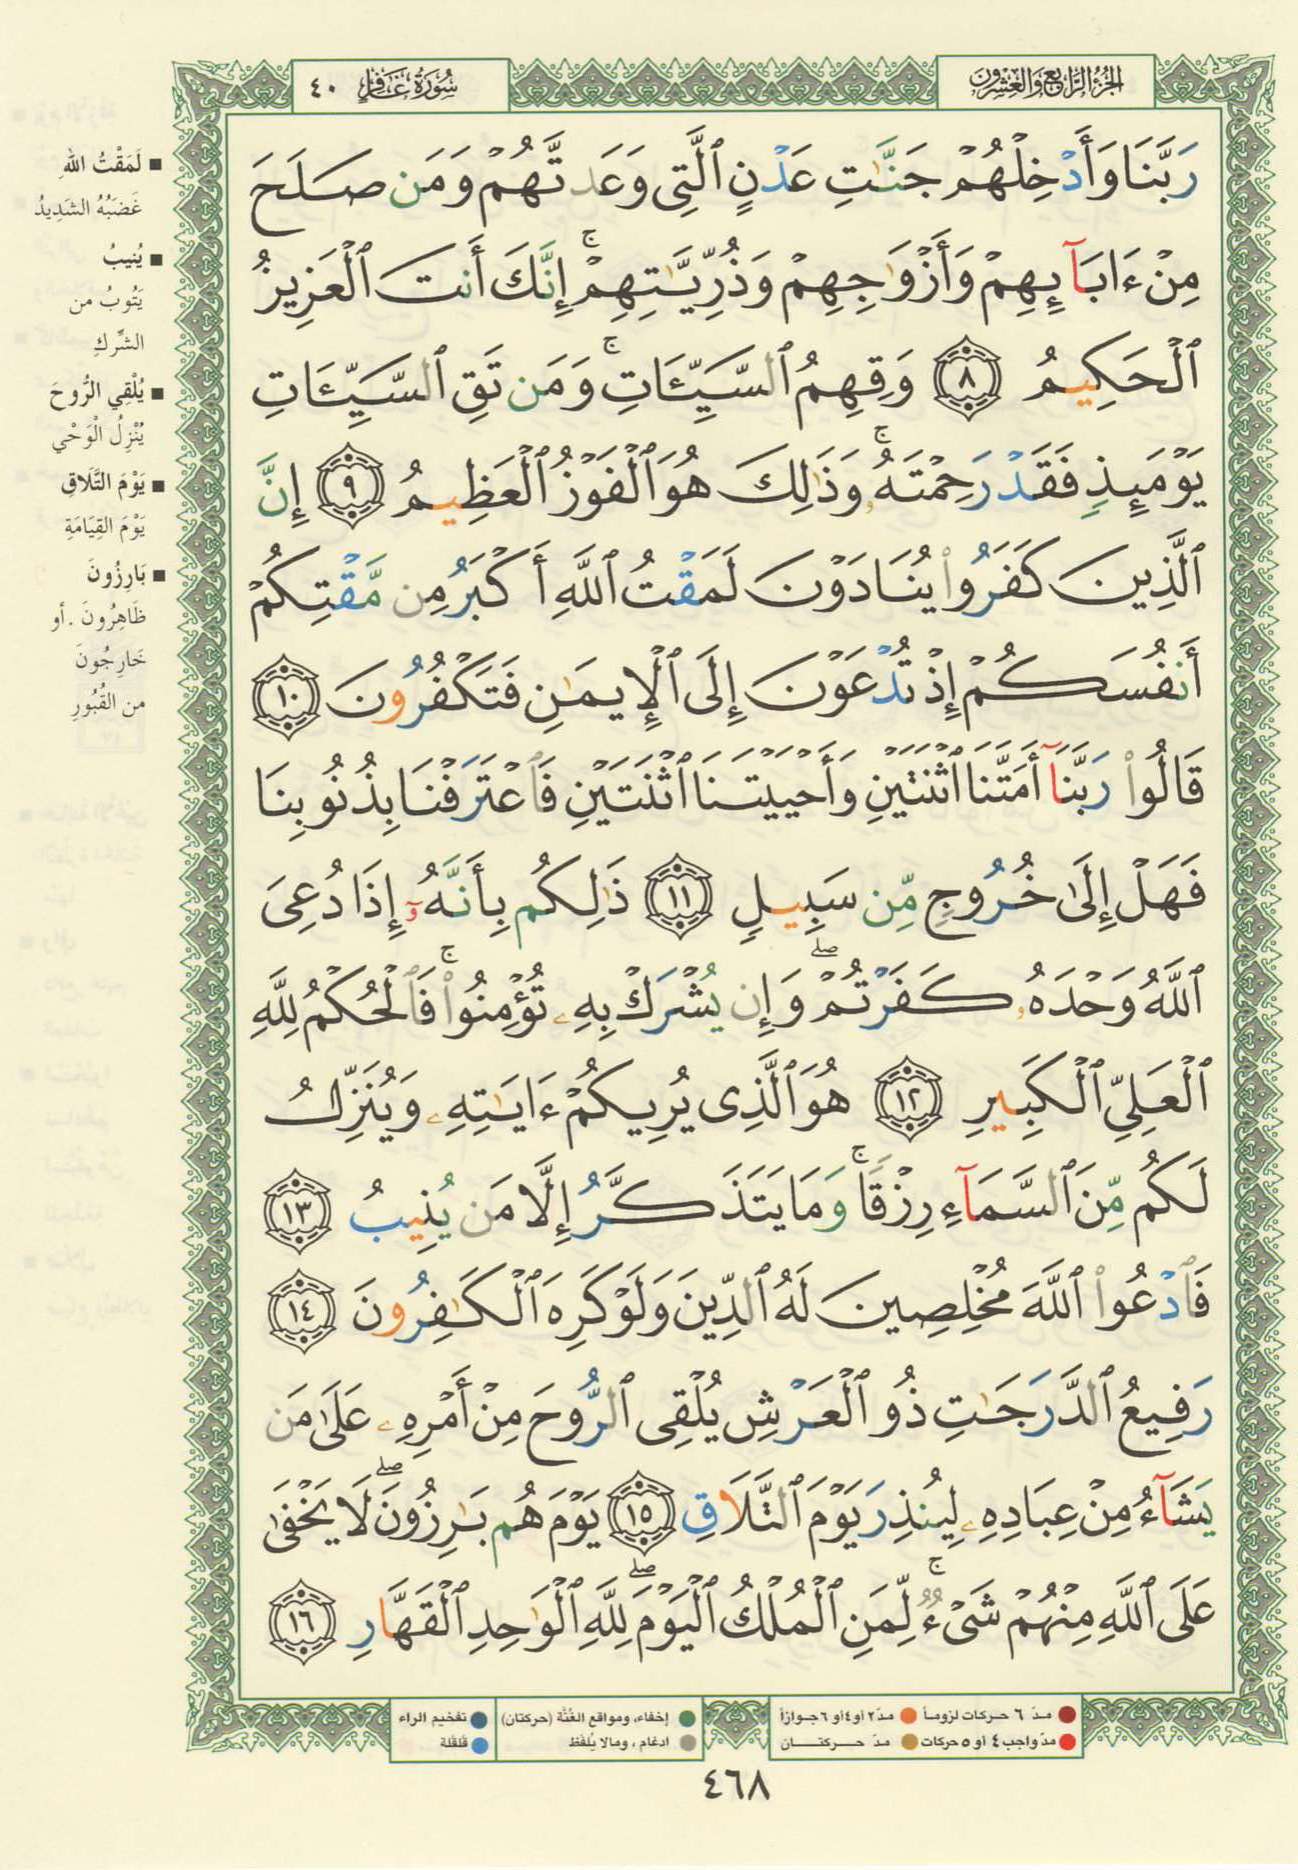 الجزء الرابع والعشرون
سورة غافر ٤٠
رَبَّنَا وَأَدْخِلْهُمْ جَنَّٰتِ عَدْنٍ ٱلَّتِى وَعَدتَّهُمْ وَمَن صَلَحَ
مِنْ ءَابَآئِهِمْ وَأَزْوَٰجِهِمْ وَذُرِّيَّٰتِهِمْ ۚ إِنَّكَ أَنتَ ٱلْعَزِيزُ
ٱلْحَكِيمُ ٨ وَقِهِمُ ٱلسَّيِّـَٔاتِ ۚ وَمَن تَقِ ٱلسَّيِّـَٔاتِ
يَوْمَئِذٍ فَقَدْ رَحِمْتَهُۥ ۚ وَذَٰلِكَ هُوَ ٱلْفَوْزُ ٱلْعَظِيمُ ٩ إِنَّ
ٱلَّذِينَ كَفَرُوا۟ يُنَادَوْنَ لَمَقْتُ ٱللَّهِ أَكْبَرُ مِن مَّقْتِكُمْ
أَنفُسَكُمْ إِذْ تُدْعَوْنَ إِلَى ٱلْإِيمَٰنِ فَتَكْفُرُونَ ١٠
قَالُوا۟ رَبَّنَآ أَمَتَّنَا ٱثْنَتَيْنِ وَأَحْيَيْتَنَا ٱثْنَتَيْنِ فَٱعْتَرَفْنَا بِذُنُوبِنَا
فَهَلْ إِلَىٰ خُرُوجٍ مِّن سَبِيلٍ ١١ ذَٰلِكُم بِأَنَّهُۥٓ إِذَا دُعِىَ
ٱللَّهُ وَحْدَهُۥ كَفَرْتُمْ ۖ وَإِن يُشْرَكْ بِهِۦ تُؤْمِنُوا۟ ۚ فَٱلْحُكْمُ لِلَّهِ
ٱلْعَلِىِّ ٱلْكَبِيرِ ١٢ هُوَ ٱلَّذِى يُرِيكُمْ ءَايَٰتِهِۦ وَيُنَزِّلُ
لَكُم مِّنَ ٱلسَّمَآءِ رِزْقًا ۚ وَمَا يَتَذَكَّرُ إِلَّا مَن يُنِيبُ ١٣
فَٱدْعُوا۟ ٱللَّهَ مُخْلِصِينَ لَهُ ٱلدِّينَ وَلَوْ كَرِهَ ٱلْكَٰفِرُونَ ١٤
رَفِيعُ ٱلدَّرَجَٰتِ ذُو ٱلْعَرْشِ يُلْقِى ٱلرُّوحَ مِنْ أَمْرِهِۦ عَلَىٰ مَن
يَشَآءُ مِنْ عِبَادِهِۦ لِيُنذِرَ يَوْمَ ٱلتَّلَاقِ ١٥ يَوْمَ هُم بَٰرِزُونَ ۖ لَا يَخْفَىٰ
عَلَى ٱللَّهِ مِنْهُمْ شَىْءٌ ۚ لِّمَنِ ٱلْمُلْكُ ٱلْيَوْمَ ۖ لِلَّهِ ٱلْوَٰحِدِ ٱلْقَهَّارِ ١٦
■ لَمَقْتُ اللهِ
غَضَبُهُ الشَدِيدُ
■ يُنِيبُ
يَتُوبُ من
الشِّركِ
■ يُلْقِي الرُّوحَ
يُنْزِلُ الْوَحْي
■ يَوْمَ التَّلَاقِ
يَوْمَ القِيَامَةِ
■ بَارِزُونَ
ظَاهِرُونَ . أو
خَارِجُونَ
من القُبُورِ
مدّ ٦ حركات لزوماً ● مدّ ٢ أو ٤ أو ٦ جوازاً
مدّ واجب ٤ أو ٥ حركات ● مدّ حركتان
إخفاء، ومواقع الغُنَّة (حركتان)
ادغام ، ومالا يُلفَظ
تفخيم الراء
قلقلة
٤٦٨